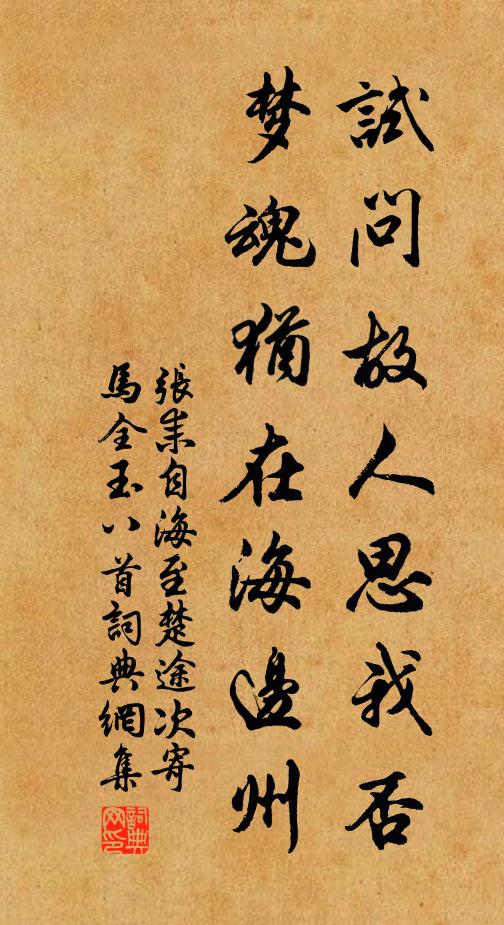 試問故人思我否
梦魂猶在海邊州
張耒自海至楚途次寄
馬全玉八首詞典網集
詞典
网印